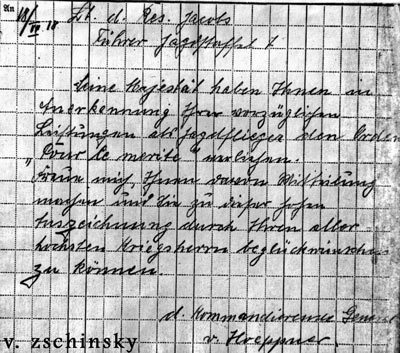 An 18/IV 18
Lt. d. Res. Jacobs
Führer Jagdstaffel 7
Seine Majestät haben Ihnen in
Anerkennung Ihrer vorzüglichen
Leistungen als Jagdflieger den Orden
„Pour le merite" verliehen.
Freue mich, Ihnen davon Mitteilung
machen und Sie zu dieser hohen
Auszeichnung durch Ihren aller-
höchsten Kriegsherrn beglückwünschen
zu können.
d. Kommandierende General
v. Hoeppner.
v. zschinsky